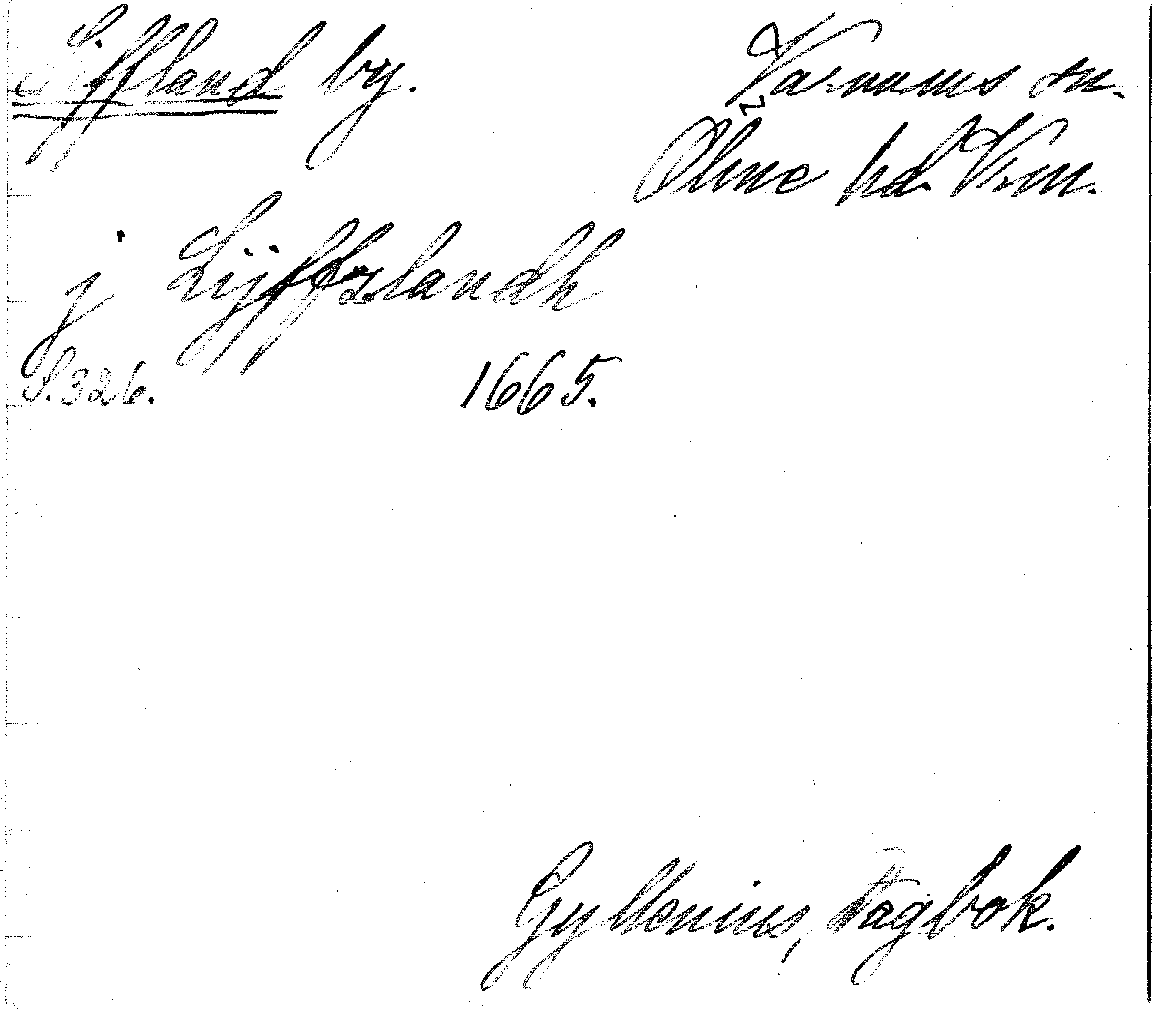 Liffland by. Varnums sn.
Ölme hd. Vrm.
j Lijffzlandh
S. 326. 1665.
Gyllenius, Dagbok.